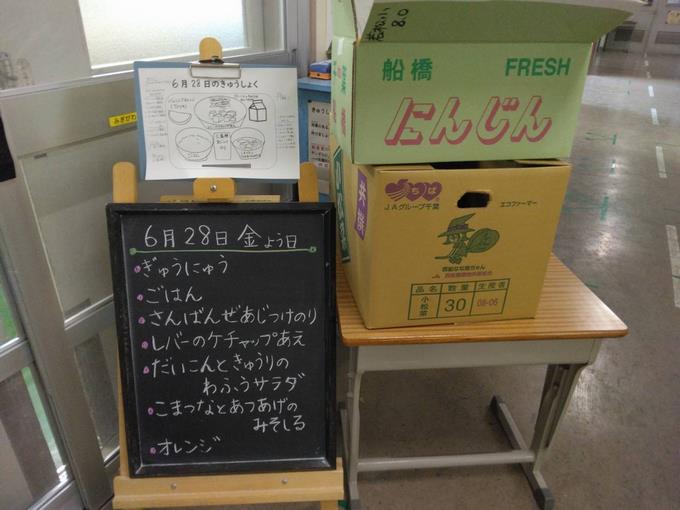 6月28日のきゅうしょく
みぎがわ
6月28日 金よう日
ぎゅうにゅう
ごはん
さんばんぜあじつけのり
レバーのケチャップあえ
だいこんときゅうりの
わふうサラダ
こまつなとあつあげの
みそしる
オレンジ
8.0
船橋 FRESH
にんじん
共撰
ちば
JAグループ千葉
エコファーマー
西船なな姫ちゃん
品名 数量 生産者
小松菜 30 08-06